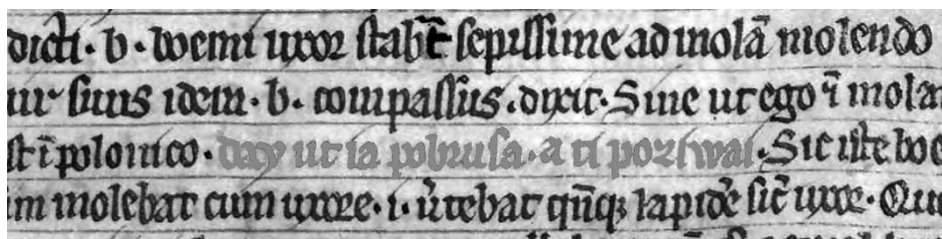 dicti · b · wemi uxor stabt̄ sepissime ad molā molendo
ur suus idem · b · compassus · dixit · Sine ut ego ī mola
st ī polonico · day ut ia pobrusa · a ti poziwai · Sic iste boe
m molebat cum uxore · i · ūtebat qn̄q; lapidē sic̄ uxor · Qu